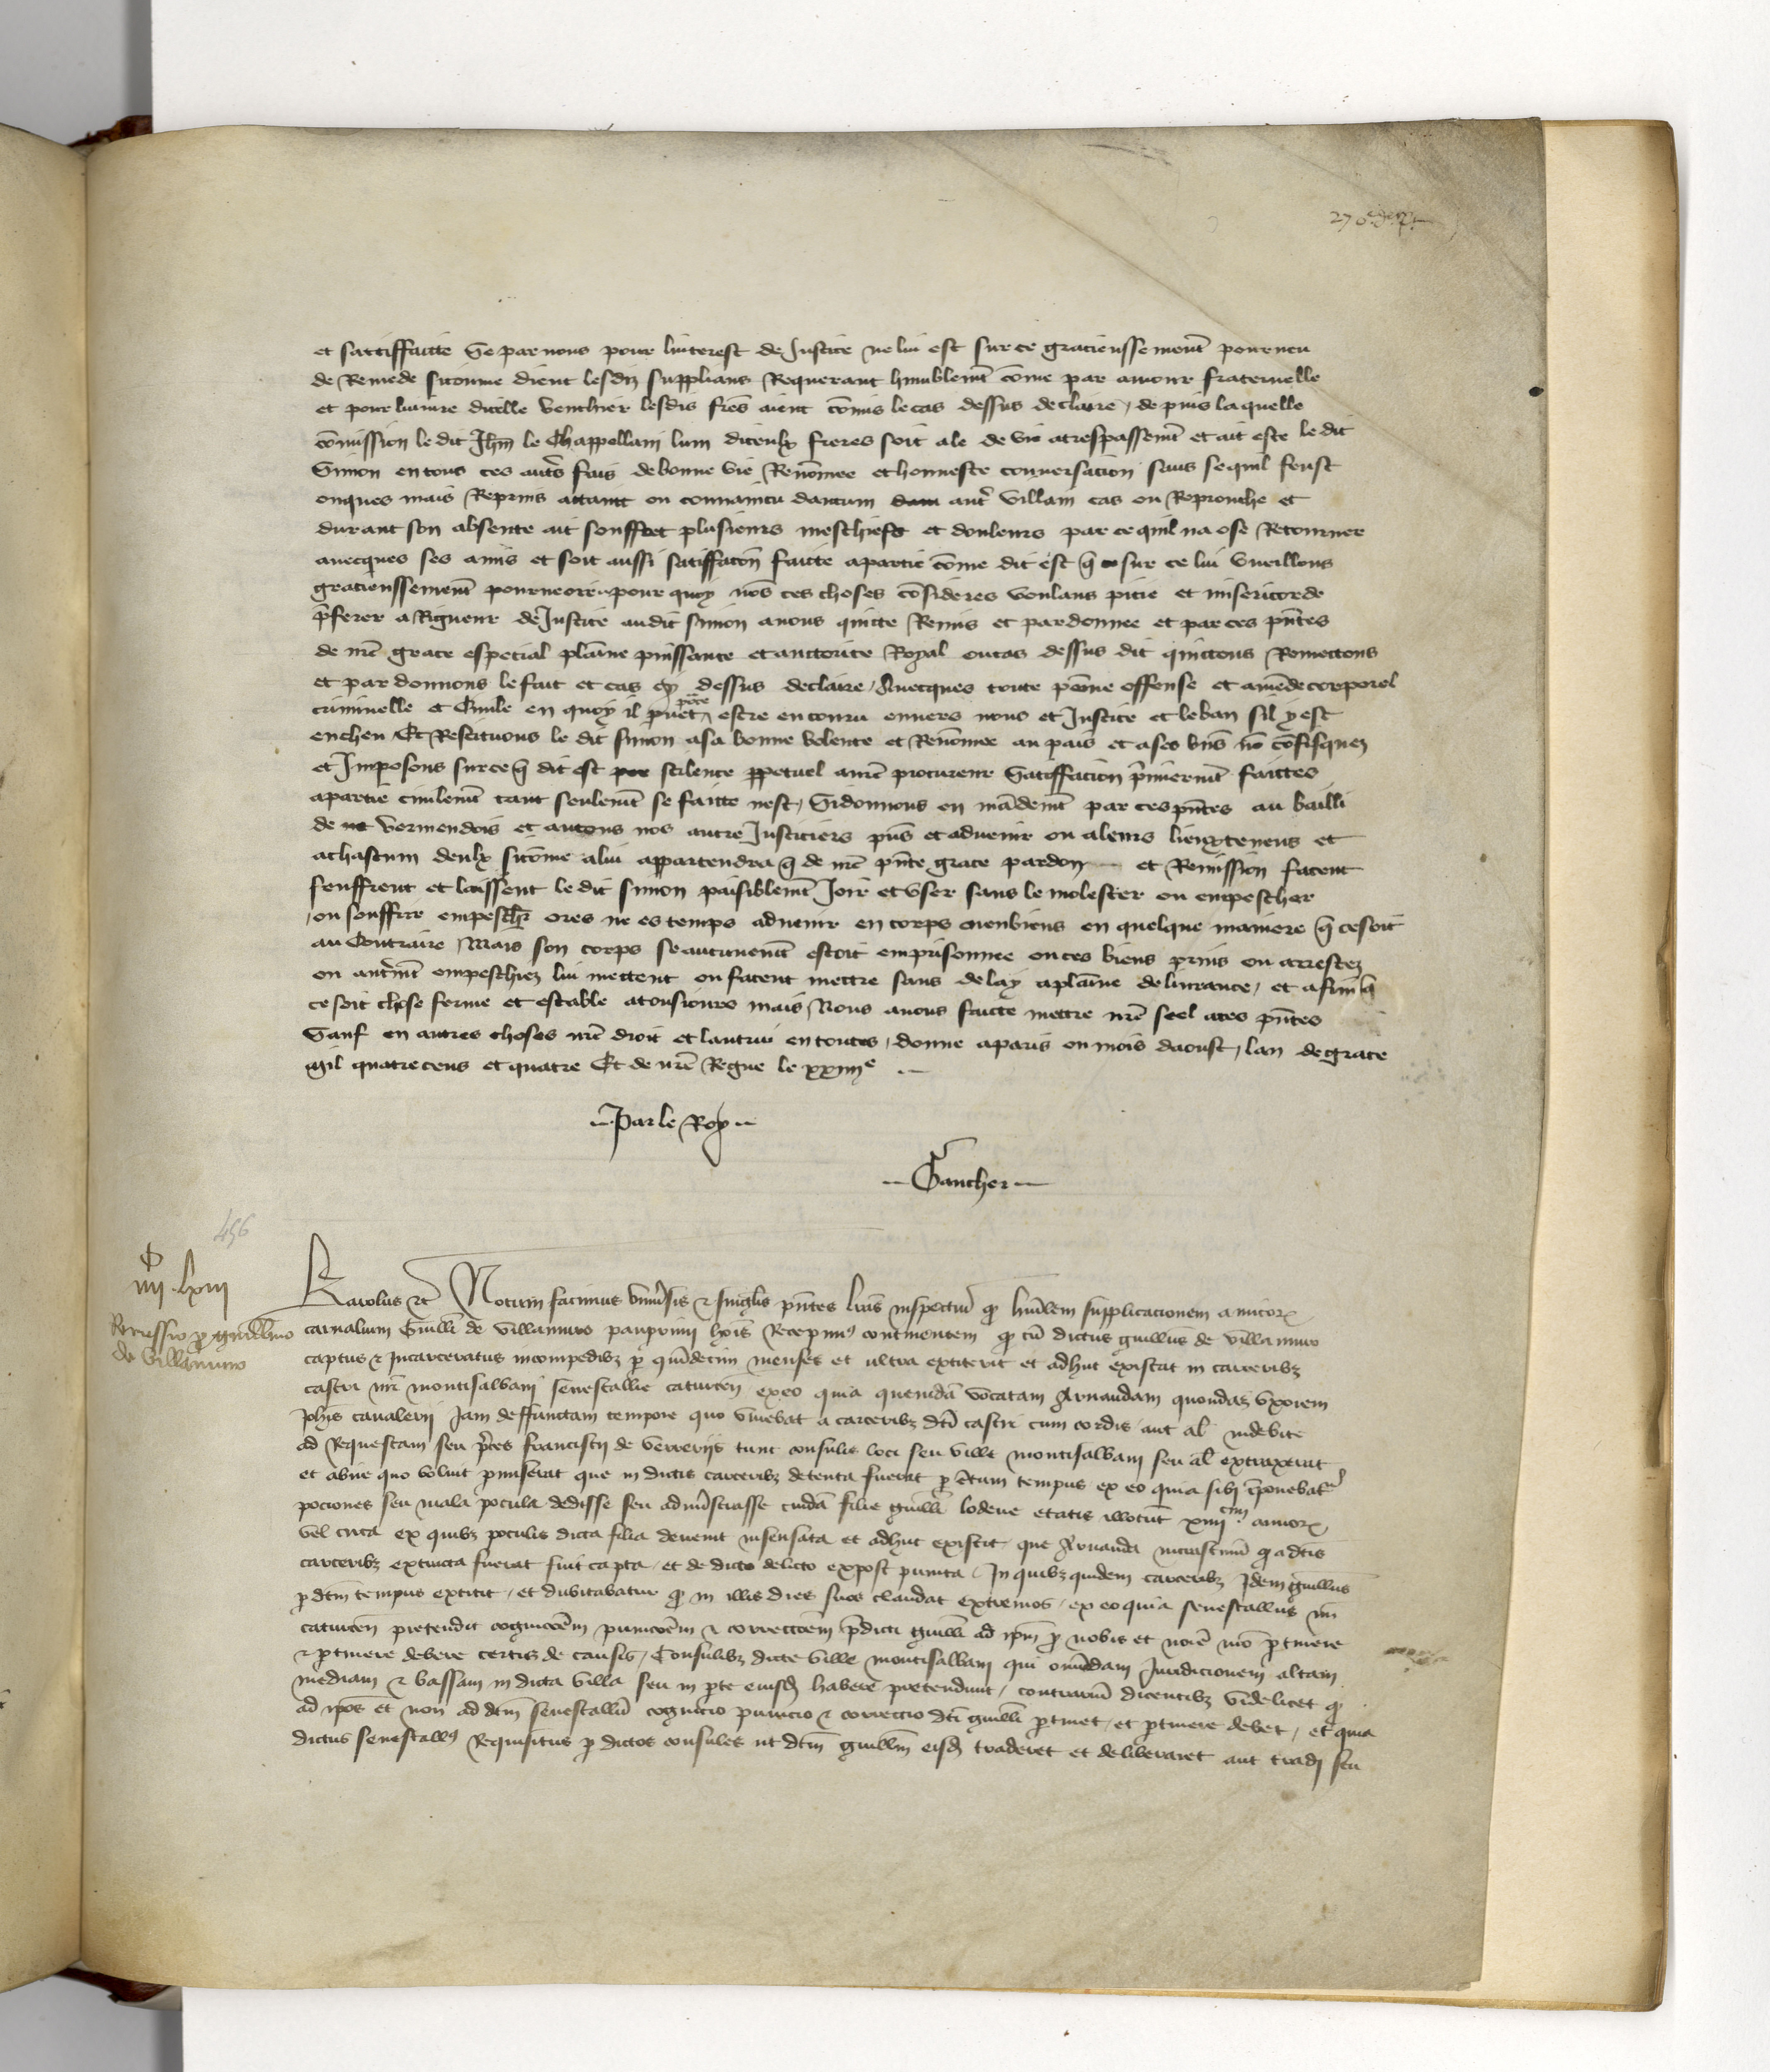 270
et sattiffaitte Se par nous pour linterest de Justice ne lui est sur ce gracieusement pourveu
de Remede sicomme dient lesdiz supplians Requerant humblemt come par amour fraternelle
et pour luniure dicelle venchier lesdis freres aient comis le cas dessus declaire, de puis laquelle
comission le dit Jehan le Chappellain lun diceulx freres soit ale de vie a trespassemt et ait este le dit
Simon en tous ces autrs fais de bonne vie Renommee et honneste conversacion sans se quil feust
onques mais Reprins attaint ou convaincu daucun autre villain cas ou Reprouche et
durant son absente ait souffert plusieurs meschiefs et douleurs par ce quil na ose Retourner
avecques ses amis et soit aussi satiffacon faicte a partie come dit est q sur ce lui vueillons
gracieussement pourveoir pour quoy nos ces choses consideres voulans pitie et misericorde
prferer a Rigueur de Justice audit simon avons quitte Remis et pardonnee et par ces pntes
de nre grace especial plaine puissance et auctorite Royal ou cas dessus dit quittons Remettons
et par donnons le fait et cas cy dessus declaire, Avecques toute peine offense et amende corporel
criminelle et Civile en quoy il puet estre encouru envers nous et Justice et le ban sil y est
encheu Et Restituons le dit simon a sa bonne volente et Renommee au pais et a ses bns no cofisquez
et Imposons sur ce q dit est scilence ppetuel a nre procureur Satiffacion primiermt faittes
a partie civilemt tant seulemt se faitte nest, Si donnons en mademt par ces pntes au bailli
de vermendois et a tous nos autre Justiciers pns et advenir ou a leurs lieuxtenens et
a chascun deulx sicome a lui appartendra q de nre pnte grace pardon et Remission facent
seuffrent et laissent le dit simon paisiblemt Joir et user sans le molester ou empescher
ou souffrir empeschr ores ne es temps advenir en corps ne en biens en quelque maniere q ce soit
au Contraire, Mais son corps se aucunement estoit emprisonnee ou ces biens prins ou arrestez
ou autremt empeschiez lui mettent ou facent mettre sans delay a plaine delivrance, et afin q
ce soit chose ferme et estable a tousiours mais, Nous avons faitte mettre nre seel a ces pntes
Sauf en autres choses nre droit et lautrui en toutes, donne a paris ou mois daoust, lan de grace
mil quatre cens et quatre Et de nre Regne le xxiiiie
Par le Roy
Gaucher
456
iiii lxiii
Remissio p guillmo
de Villamuro
Karolus etc Notum facimus univsis et singlis pntes lras inspectur q humlem supplicacionem amicor
carnalium Guilli de Villamuro pauperrimi hois Recepimus continentem q cu dictus guillus de villamuro
captus et Incarceratus in compedibz p quindecim menses et ultra extiterit et adhuc existat in carceribz
castri nri montisalbani senescallie caturcen ex eo quia quemda vocatam Arnaudam quondaz uxorem
Johis cavalerii Jam deffunctam tempore quo vivebat a carceribz dti castri cum cordis aut al indebite
ad Requestam seu preces francisci de verreriis tunc consulis loci seu ville montisalbani seu al extraxerat
et abire quo voluit pmiserat que in dictis carceribz detenta fuerat p ctum tempus ex eo quia sibi iponebatr
pociones seu mala pocula dedisse seu administrasse cuida filie guilli lodeve etatis illoruc xiiii cim annor
vel circa ex quibz poculis dicta filia devenit insensata et adhuc existit que Arnauda incrastinu q a dtis
carceribz extracta fuerat fuit capta et de dicto delicto expost punita In quibz quidem carceribz Idem guillus
p dtm tempus extitit, et dubitabatur q in illis dies suos claudat extremos ex eo quia senescallus nri
caturcen pretendit cognicoem punicoem et correccoem pdicti guilli ad ipm p nobis et noie nro ptinere
et ptinere debere certis de causis, Consulibz dicte ville montisalbani qui omidam Jurisdicionem altam
mediam et bassam in dicta villa seu in pte eiusd habere pretendunt, contrariu dicentibz videlicet q
ad ipos et non ad dtm senescallu cognicio punicio et correccio dti guilli ptinet, et ptinere debet, et quia
dictus senescallus Requisitus p dictos consules ut dtm guillm eisd traderet et deliberaret aut tradi seu